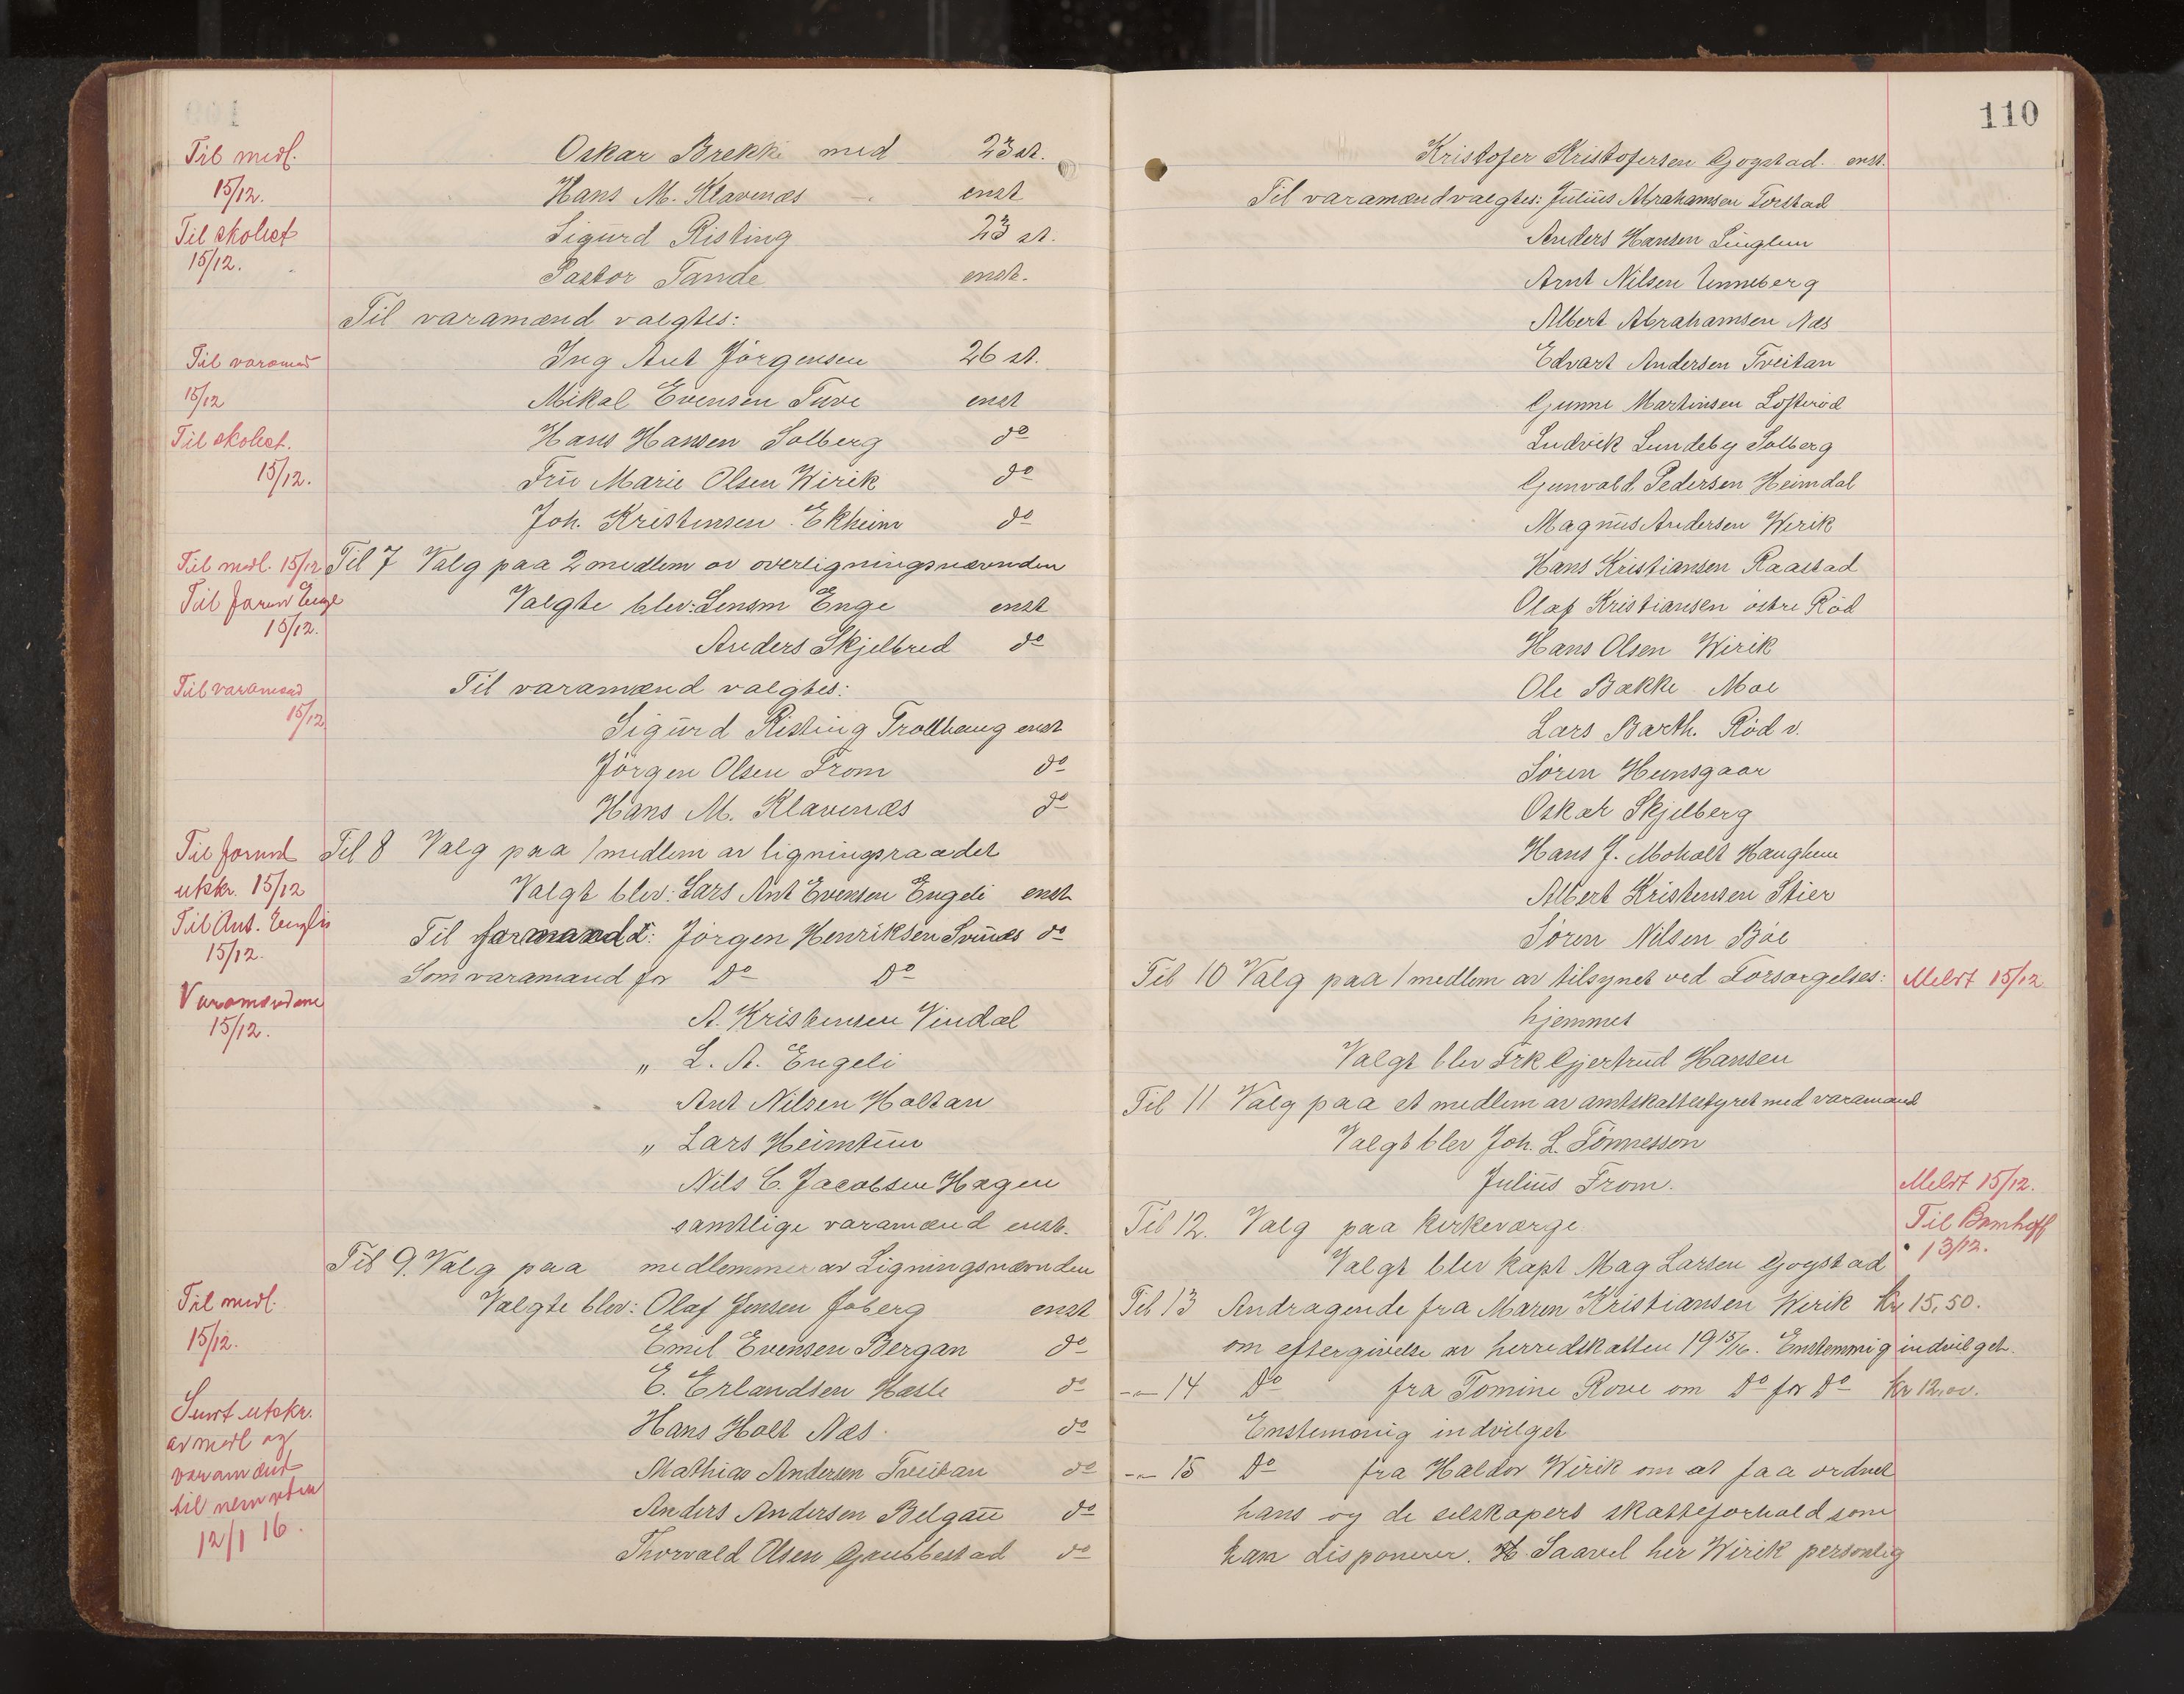 Til medl.
15/12.
Til skolest
15/12.
Til varamænd
15/12
Til skolest.
15/12.
Til medl. 15/12
Til form Enge
15/12.
Til varamænd
15/12
Til formd
utskr. 15/12
Til Ant. Engeli
15/12.
Varamændene
15/12.
Til medl.
15/12.
Sendt utskr.
av medl og
varamænd
til nemnden
12/1 16.
Oskar Brekke med 23 st.
Hans M. Klavenæs enst
Sigurd Risting 23 st.
Pastor Tande enst.
Til varamænd valgtes:
Ing Ant Jörgensen 26 st.
Mikal Evensen Tuve enst
Hans Hansen Solberg do
Fru Marie Olsen Wirik do
Joh. Kristensen Ekheim do
Til 7 Valg paa 2 medlem av overligningsnævnden
Valgte blev: Lensm Enge enst
Anders Skjelbred do
Til varamænd valgtes:
Sigurd Risting Trollhaug enst
Jörgen Olsen From do
Hans M. Klavenæs do
Til 8 Valg paa 1 medlem av ligningsraadet
Valgt blev: Lars Ant Evensen Engeli enst
Til formand: Jörgen Henriksen Svinæs do
Som varamand for do do
A. Kristensen Vindal
" L. A. Engeli
Ant Nilsen Holtan
" Lars Heimtun
Nils C. Jacobsen Hagen
samtlige varamænd enst.
Til 9. Valg paa medlemmer av Ligningsnævnden
Valgte blev: Olaf Jensen Joberg enst
Emil Evensen Bergan do
E. Erlandsen Hasle do
Hans Holt Næs do
Mathias Andersen Tveitan do
Anders Andersen Belgau do
Thorvald Olsen Grubbestad do
110
Kristofer Kristofersen Gogstad. enst.
Til varamænd valgtes: Julius Abrahamsen Torstad
Anders Hansen Linglem
Arnt Nilsen Unneberg
Albert Abrahamsen Næs
Edvart Andersen Tveitan
Gunne Martinsen Lofteröd
Ludvik Lundeby Solberg
Gunvald Pedersen Heimdal
Magnus Andersen Wirik
Hans Kristiansen Raastad
Olaf Kristiansen östre Röd
Hans Olsen Wirik
Ole Bakke Moe
Lars Barth. Röd v.
Sören Hunsgaar
Oskar Skjelberg
Hans J. Moholt Haughem
Albert Kristensen Stier
Sören Nilsen Böe
Til 10 Valg paa 1 medlem av tilsynet ved Forsorgelses: Meldt 15/12
hjemmet
Valgt blev Frk Gjertrud Hansen
Til 11 Valg paa et medlem av amtskattestyret med varamand
Valgt blev Joh. L. Tönnesson
Julius From. Meldt 15/12.
Til 12. Valg paa kirkeværge
Til
13/12.
Valgt blev kapt Mag Larsen Gogstad
Til 13 Andragende fra Maren Kristiansen Wirik kr 15,50.
om eftergivelse av herredskatten 1915/16. Enstemmig indvilget.
-"- 14 do fra Tomine Rove om do for do kr 12,00.
Enstemmig indvilget
-"- 15 do fra Haldor Wirik om at faa ordnet
hans og de selskapers skatteforhold som
han disponerer. Saavel her Wirik personlig